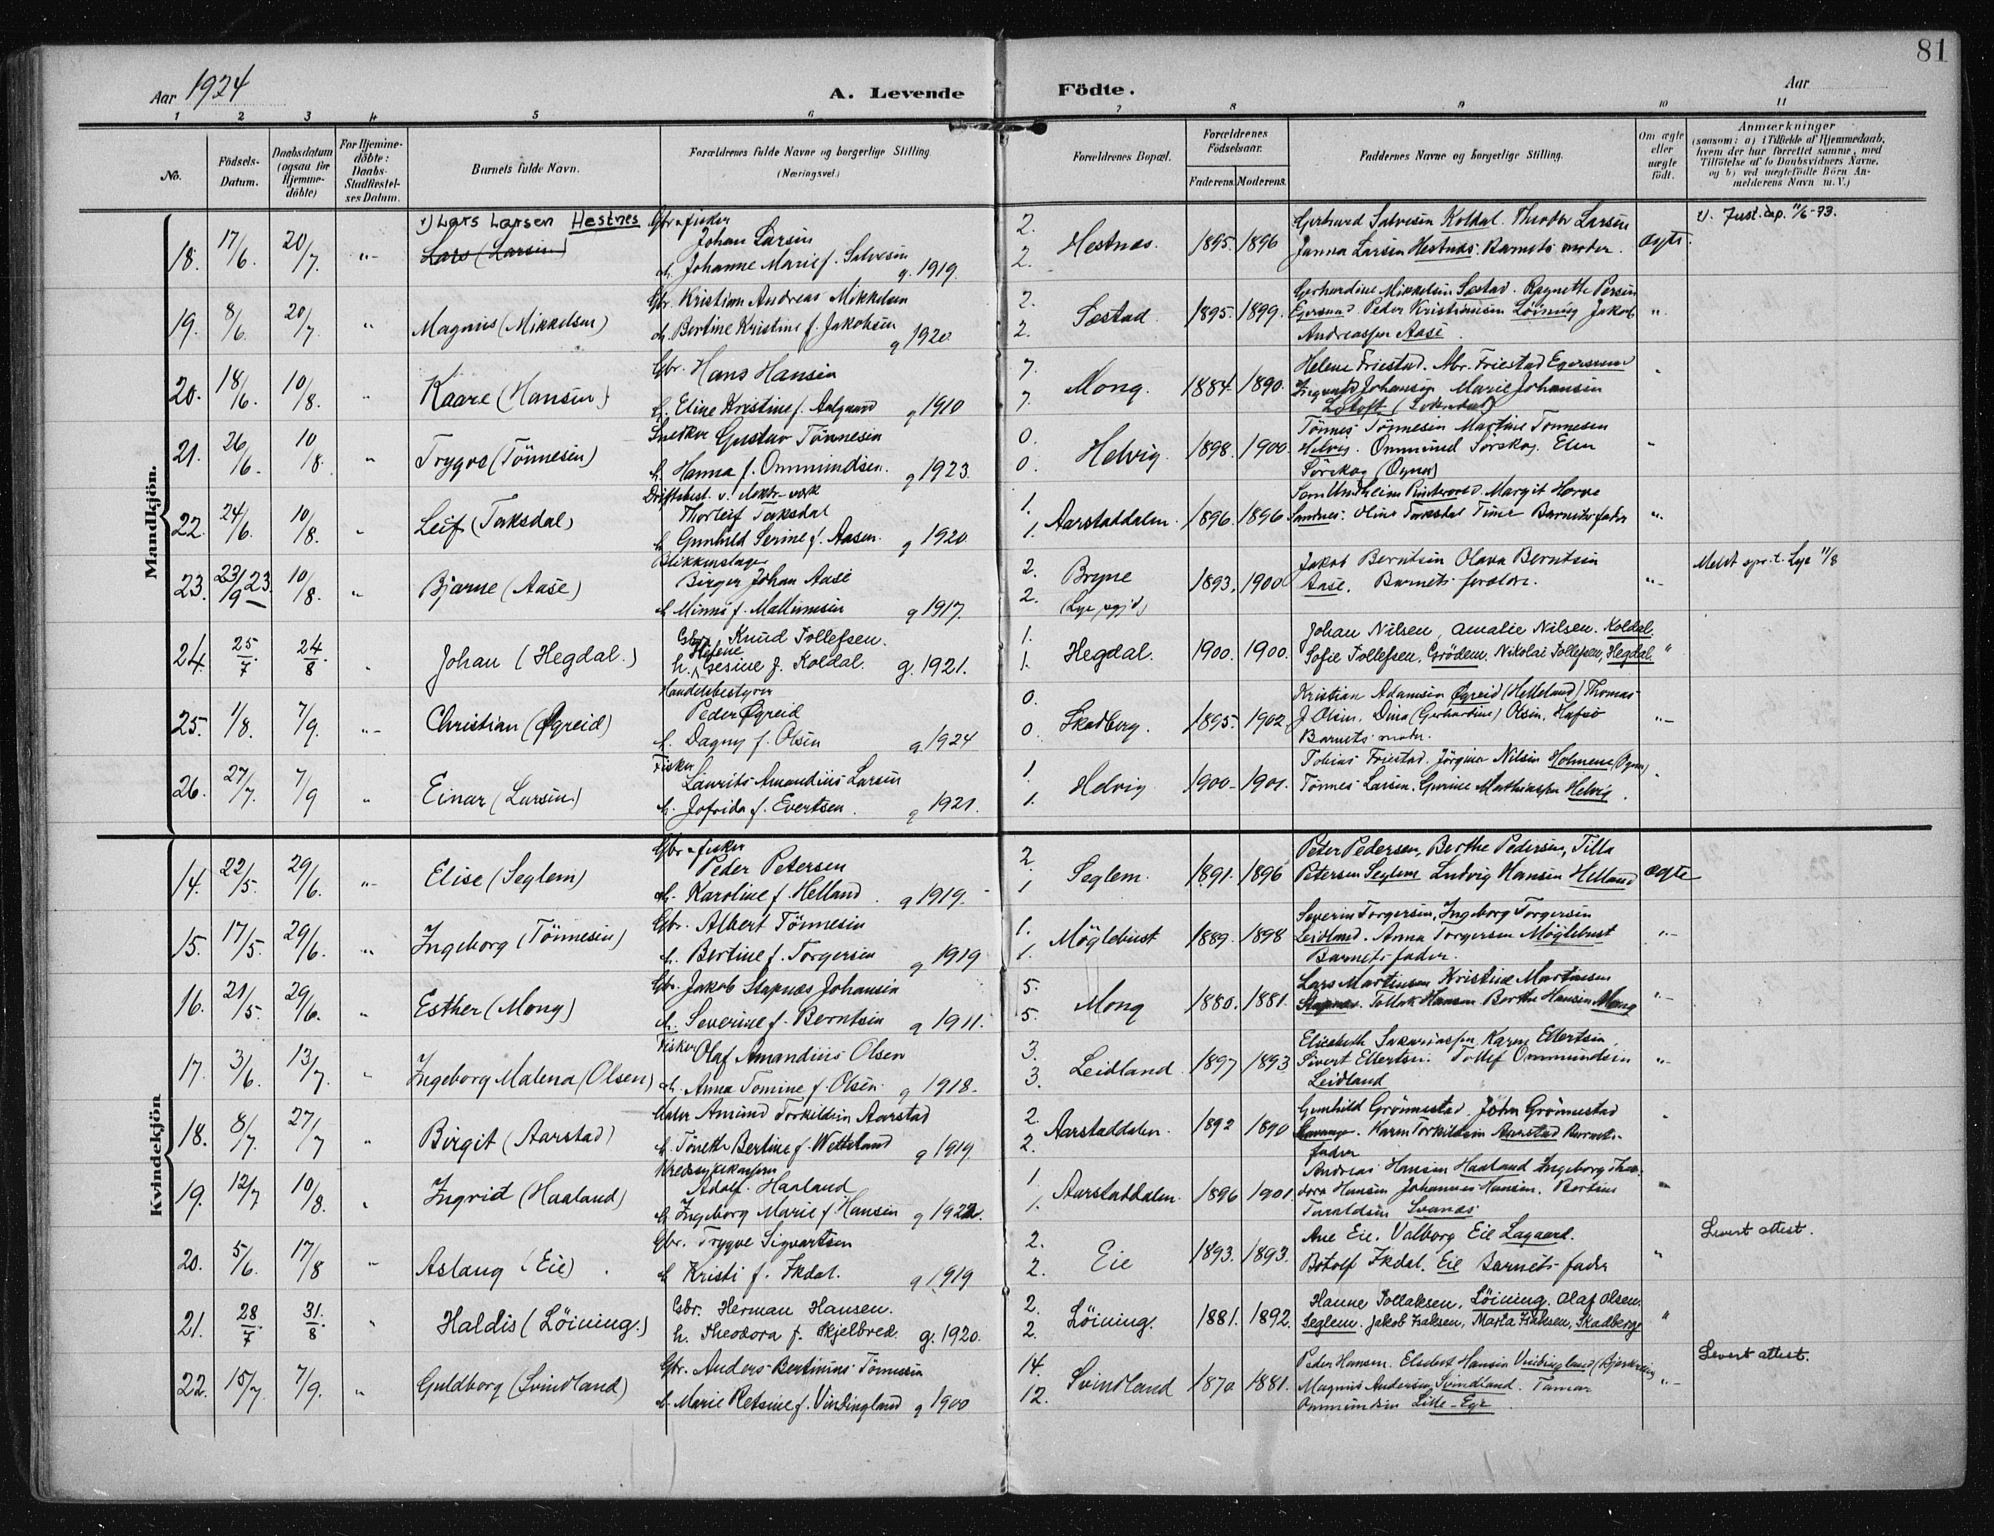 81
Aar 1924 A. Levende Födte. Aar
1 2 3 4 5 6 7 8 9 10 11
No. Födsels-Datum. Daabsdatum (ogsaa for Hjemme-döbte) For Hjemme-döbte: Daabs-Stadfæstel-ses Datum. Barnets fulde Navn. Forældrenes fulde Navne og borgerlige Stilling. (Næringsvei.) Forældrenes Bopæl. Forældrenes Födselsaar. Faderens. Moderens. Faddernes Navne og borgerlige Stilling. Om ægte eller uægte födt. Anmærkninger (saasom: a) i Tilfælde af Hjemmedaab, hvem der har forrettet samme, med Tilföielse af to Daabsvidners Navne, og b) ved uægtefödte Börn An-melderens Navn m. V.)
Mandkjön.
1) Lars Larsen Hestnes Gbr. & fisker 2. Gerhard Salvesen Koldal. Theodor Larsen 1). Just.dep. 11/6-73.
18. 17/6. 20/7. "- Lars (Larsen) Johan Larsen Hestnæs. 1895. 1896 Janna Larsen Hestnæs. Barnets moder. ægte.
h. Johanne Marie f. Salvesen g. 1919. 2.
Gbr. Kristian Andreas Mikkelsen 2. Gerhardine Mikkelsen Sæstad. Ragnette Persen
19. 8/6. 20/7. " Magnus (Mikkelsen) h. Bertine Kristine f. Jakobsen g 1920. Sæstad 1895. 1899. Egersund Peder Kristiansen Löining Jakob "
2. Andreassen Aase.
Gbr. Hans Hansen 7. Helene Friestad. Abr. Friestad Egersund
20. 18/6. 10/8. " Kaare (Hansen) h. Eline Kristine f. Aalgaard g 1910 Mong. 1884. 1890. Ingvald Johansen Marie Johansen "
7.
Snedker Gustav Tönnesen 0. Tönnes Tönnesen Martine Tönnesen
21. 26/6. 10/8. " Trygve (Tönnesen) h. Hanna f. Ommundsen. g 1923. Helvig. 1898. 1900. Helvig. Ommund Sörskog. Elen "
0. Sörskog (Ogna)
Thorleif Taksdal 1. Margit Horve
22. 24/6. 10/8. " Leif (Taksdal) h. Gunhild Serine f. Aasen. g 1920. Aarstaddalen. 1896. 1896 Sandnes. Oline Taksdal Time Barnets fader "
Blikkenslager 1.
23. 23/9 23. 10/8. " Bjarne (Aase) Birger Johan Aase 2. Bryne 1893. 1900 Jakob Berntsen Olava Berntsen "- Meldt spr. t. Lye 11/8
h. Minni f. g 1917. 2. (Lye pgjd) Aase. Barnets forældre.
Gbr. Knud Tollefsen. 1. Johan Nilsen, Amalie Nilsen. Koldal.
24. 25/7 24/8 " Johan (Hegdal.) h. Helene Gesine f. Koldal. g. 1921. Hegdal. 1900. 1900. Sofie Tollefsen. Grödem. Nikolai Tollefsen, Hegdal. "
Handelsbestyrer 1.
25. 1/8. 7/9. "- Christian (Øgreid) Peder Øgreid 0. Skadberg. 1895. 1902. Kristian Adamsen Øgreid (Helleland) Thomas "-
h. Dagny f. Olsen g 1924 0. J. Olsen. Dina (Gerhardine) Olsen. Hafsö
Barnets moder.
Fisker Laurits Amandius Larsen 1. Tobias Friestad. Jörgine Nilsen Holmene (Ogna)
26. 27/7. 7/9 " Einar (Larsen.) h. Jofrida f. Evertsen. g 1921. Helvig 1900. 1901. Tönnes Larsen. Gurine Mathiassen Helvig. "
1.
Kvindekjön
Gbr. & fisker 2. Peter Pedersen, Berthe Pedersen, Tilla
14. 22/5. 29/6. "- Elise (Seglem) Peder Petersen Seglem. 1891. 1896 Petersen Seglem Ludvig Hansen Helland ægte
h. Karoline f. Helland. g 1919. 1
Gbr. Albert Tönnesen 1. Severin Torgersen, Ingeborg Torgersen
15. 17/5. 29/6. " Ingeborg (Tönnesen) h. Bertine f. Torgersen g 1919 Möglebust 1889. 1898 Leidland. Anna Torgersen Möglebust "-
1. Barnets fader.
Gbr. Jakob Stapnæs Johansen 5. Lars Martinsen Kristine Martinsen
16. 21/5. 29/6. " Esther (Mong) h. Severine f. Berntsen g 1911. Mong 1880. 1881. Stapnæs. Tollak Hansen Berthe Hansen Mong "-
5.
Fisker Olaf Amandius Olsen 3. Elisabeth Sakariassen Karen Edertsen.
17. 3/6. 13/7. " Ingeborg Malena (Olsen) h. Anna Tomine f. Olsen. g 1918. Leidland 1897 1893 Sivert Edertsen. Tollef Ommundsen "-
3. Leidland
Maler Amund Torkildsen Aarstad 2. Gunhild Grönnestad. John Grönnestad
18. 8/7. 27/7 " Birgit (Aarstad) h. Tönette Bertine f. Wetteland g 1919. Aarstaddalen. 1892 1890 Karen Torkildsen Aarstad Barnets "
2. fader
Adolf. Haaland 1. Andreas Hansen Haaland Ingeborg Theo-
19. 12/7 10/8. " Ingrid (Haaland) h. Ingeborg Marie f Hansen g 1922. Aarstaddalen. 1896 1901. dora Hansen Johannes Hansen. Bertine "
1. Taraldsen Svanæs.
Gbr. Trygve Sigvartsen 2. Ane Eie. Valborg Eie Lagaard. Levert attest.
20. 5/6. 17/8 " Aslaug (Eie). h. Kristi f. Ikdal. g. 1919 Eie 1893. 1893. Botolf Ikdal. Eie Barnets fader "
2.
Gbr. Herman Hansen. 2. Hanne Tollaksen, Löining. Olaf Olsen.
21. 28/7 31./8 " Haldis (Löining.) h. Theodora f. Skjelbred. g. 1920. Löining. 1881. 1892. Seglem. Jakob Isaksen, Marta Isaksen, Skadberg. "
2.
Gbr. Anders Bertinius Tönnesen 14. Peder Hansen. Elisebet Hansen Vindingland (Bjerkreim) Levert attest.
22. 15/7. 7/9. " Guldborg (Svindland) h. Marie Retsine f. Vindingland g 1900 Svindland 1870 1881. Magnus Andersen Svindland. Tamar "-
12. Ommundsen Litle-Egr